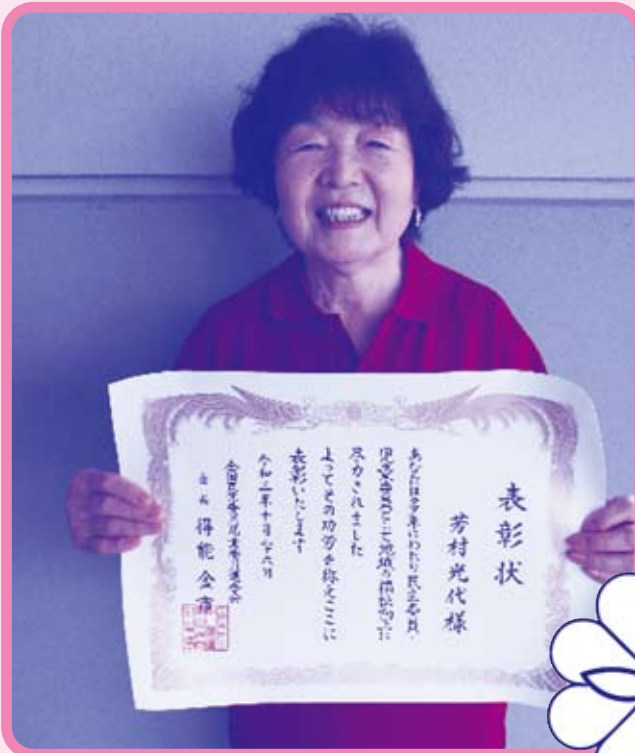 表彰状
芳村光代様
あなたは多年にわたり民生委員・
児童委員として地域の福祉向上に
尽力されました
よってその功労を称えここに
表彰いたします
令和二年十月二十六日
全国民生委員児童委員連合会
会長 得能金市